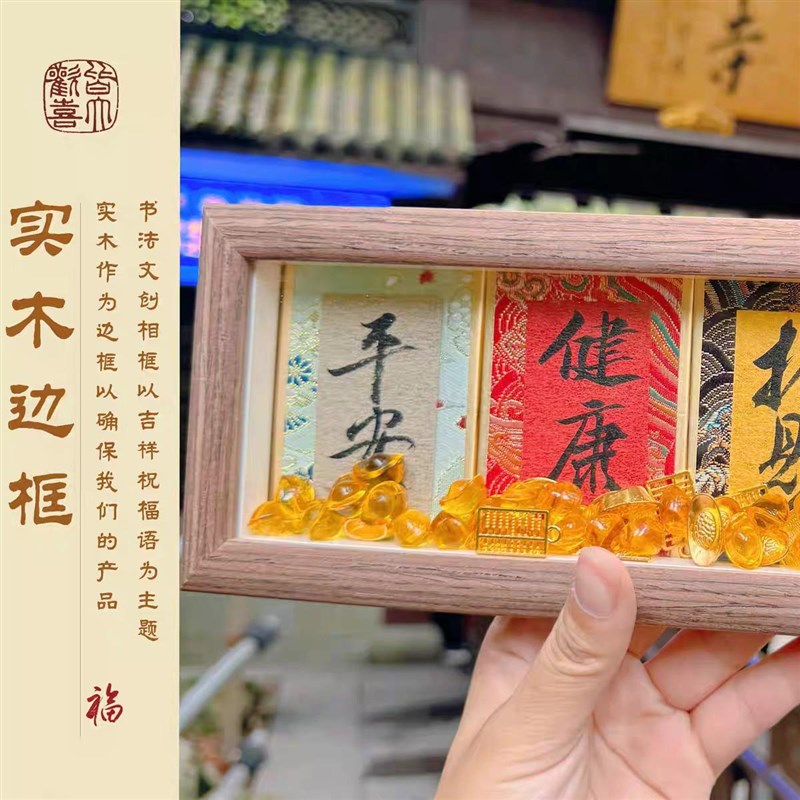 皆大歡喜
实木边框
书法文创相框以吉祥祝福语为主题
实木作为边框以确保我们的产品
福
平安
健康